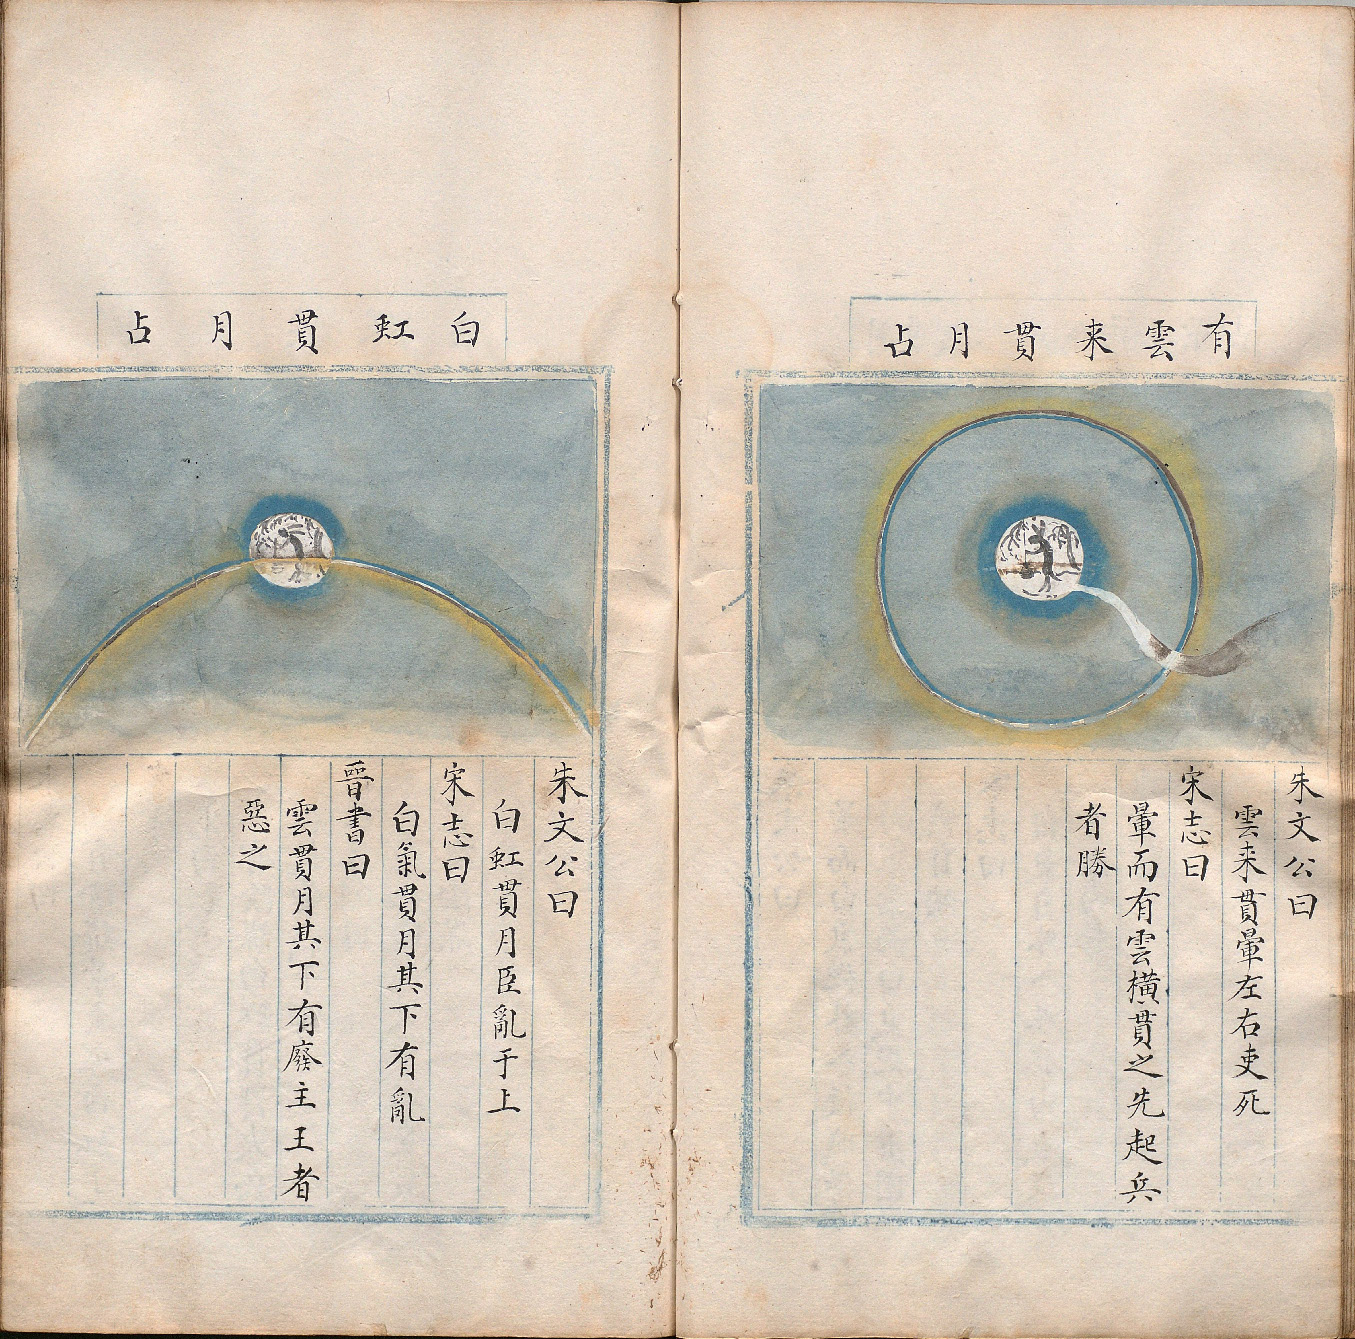 有雲来貫月占
朱文公曰
雲来貫暈左右吏死
宋志曰
暈而有雲橫貫之先起兵
者勝
白虹貫月占
朱文公曰
白虹貫月臣亂于上
宋志曰
白氣貫月其下有亂
晉書曰
雲貫月其下有廢主王者
惡之